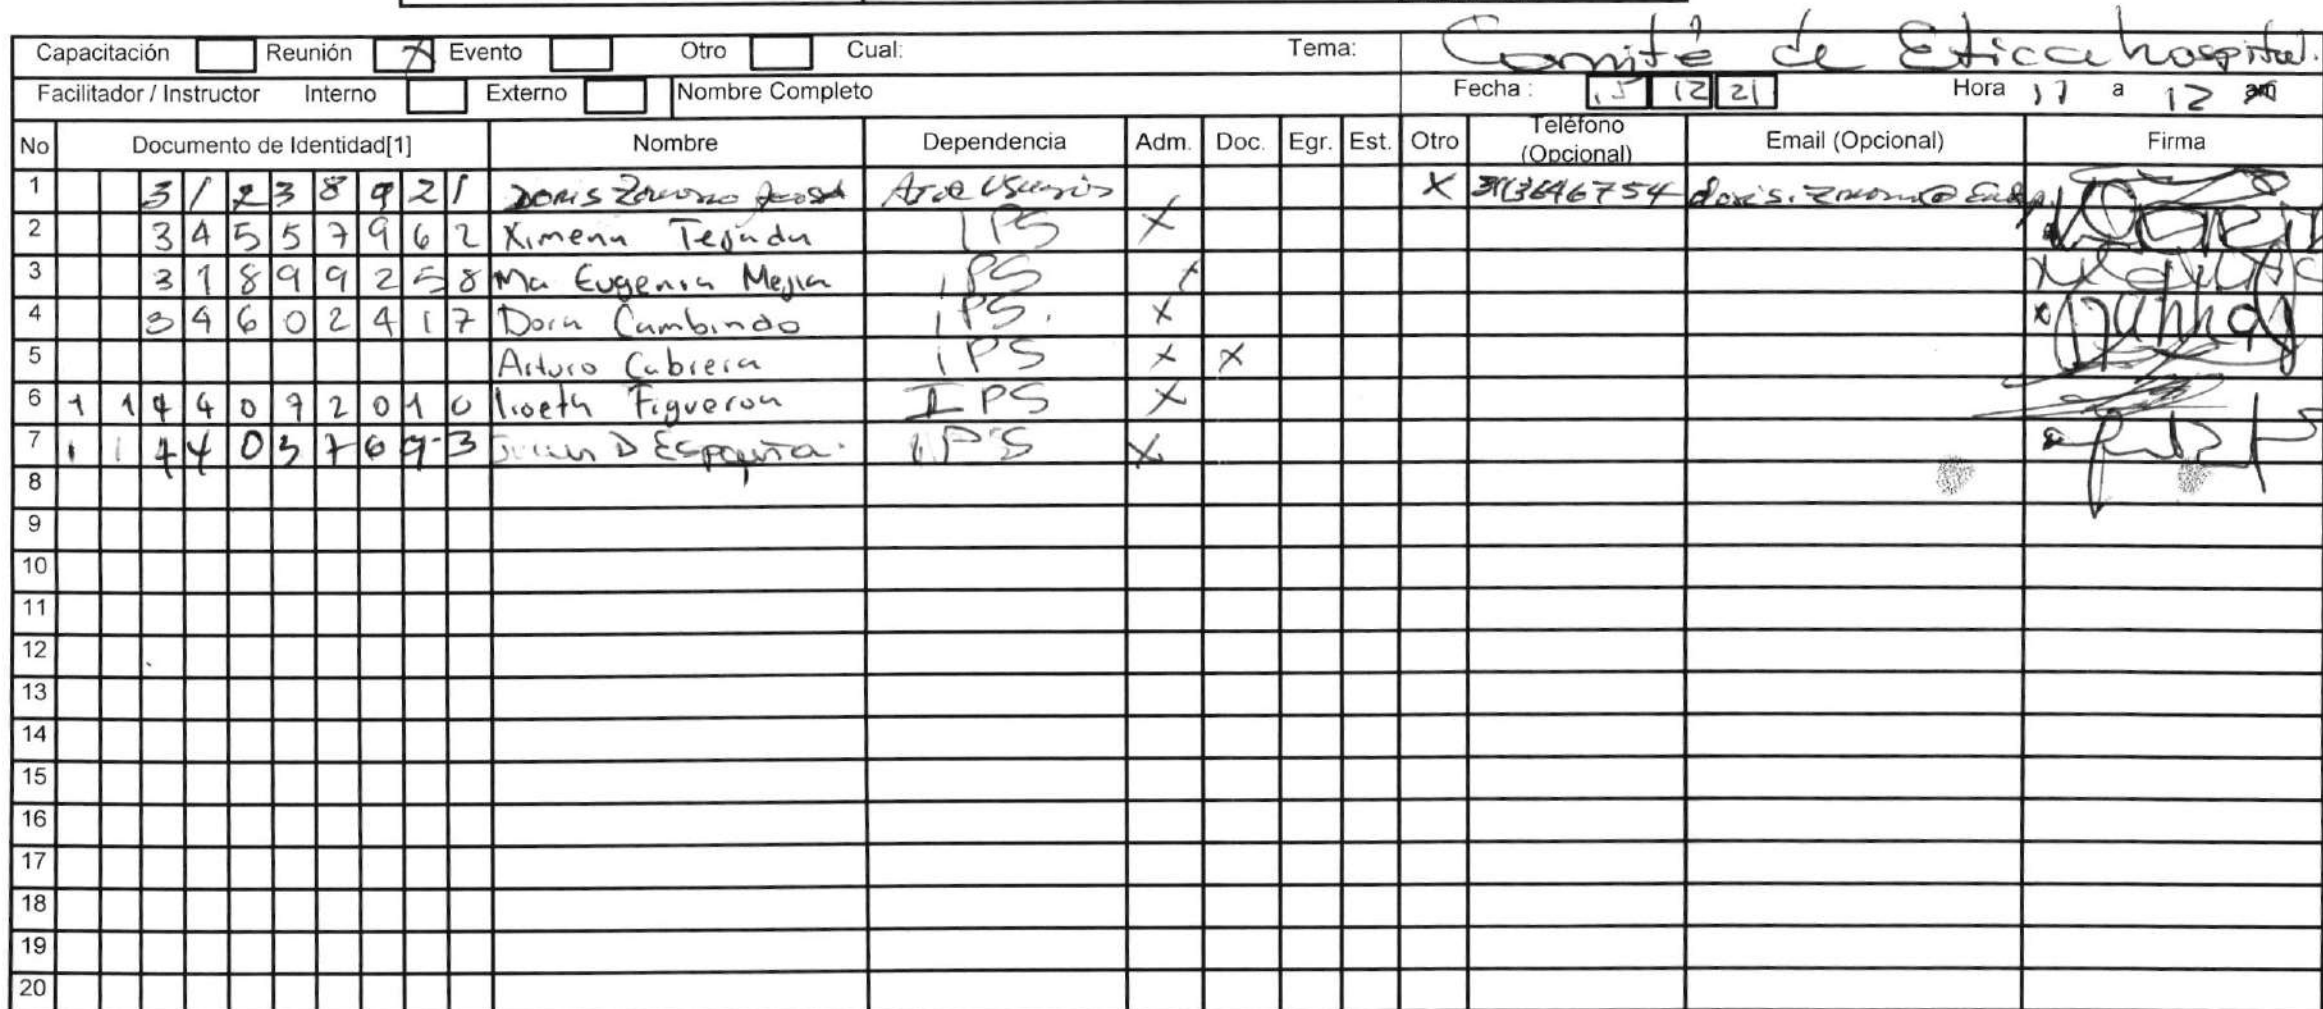 Capacitación Reunión X Evento Otro Cual: Tema: Comité de Etica hospital.
Facilitador / Instructor Interno Externo Nombre Completo Fecha : 15 12 21 Hora 11 a 12 am
No Documento de Identidad[1] Nombre Dependencia Adm. Doc. Egr. Est. Otro Teléfono (Opcional) Email (Opcional) Firma
1 31238921 Doris X
2 34557962 Ximena Tejada IPS X
3 31899258 Ma Eugenia Mejia IPS X
4 34602417 Dora Cambindo IPS. X
5 Arturo Cabrera IPS X X
6 Figueroa IPS X
7 D España. IPS X
8
9
10
11
12
13
14
15
16
17
18
19
20